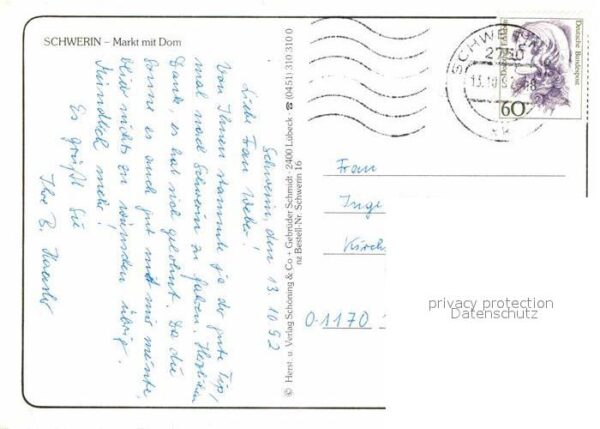 SCHWERIN – Markt mit Dom
Schwerin, den 13.10.92
Liebe Frau Weber!
Von Ihnen stammte ja der gute Tip,
mal nach Schwerin zu fahren. Herzlichen
Dank, es hat sich gelohnt. Da die
Sonne es auch gut mit mir meinte,
blieb nichts zu wünschen übrig.
Mündlich mehr!
Es grüßt Sie
Ihre B.
© Herst. u. Verlag Schöning & Co + Gebrüder Schmidt · 2400 Lübeck · ☎ (0451) 310 310 0
nz Bestell-Nr. Schwerin 16
SCHWERIN
2750
13.10
Deutsche Bundespost
60
Frau
Inge
Kirch
O-1170
privacy protection
Datenschutz